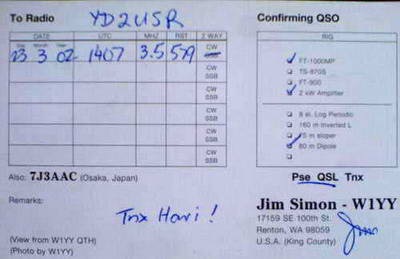 To Radio YD2USR
Confirming QSO
DATE UTC MHZ RST 2 WAY
Day Month Year
23 3 02 1407 3.5 579 CW SSB
CW SSB
CW SSB
CW SSB
CW SSB
CW SSB
RIG
FT-1000MP
TS-870S
FT-900
2 kW Amplifier
8 el. Log Periodic
160 m Inverted L
75 m sloper
80 m Dipole
Also: 7J3AAC (Osaka, Japan)
Pse QSL Tnx
Remarks:
Tnx Hari !
Jim Simon - W1YY
17159 SE 100th St.
Renton, WA 98059
U.S.A. (King County)
Jim
(View from W1YY QTH)
(Photo by W1YY)